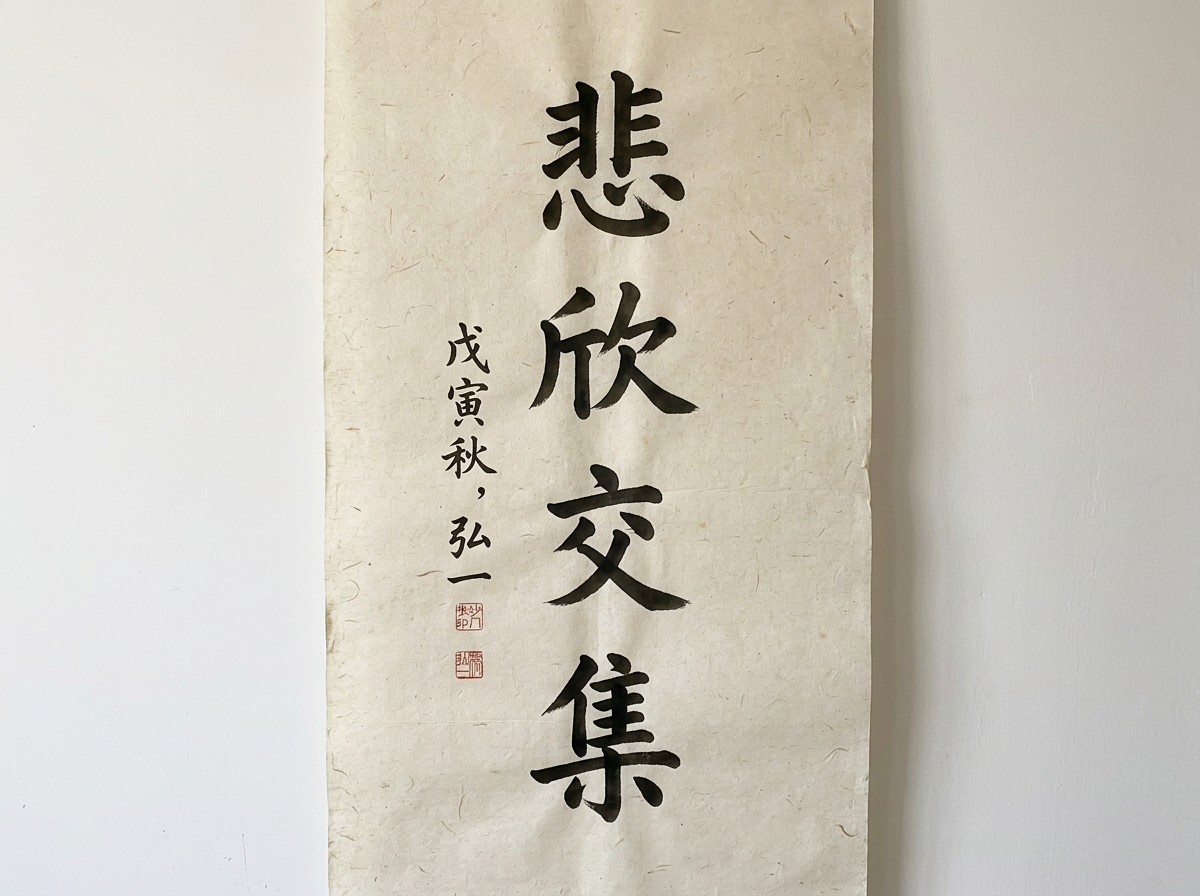 悲欣交集
戊寅秋，弘一